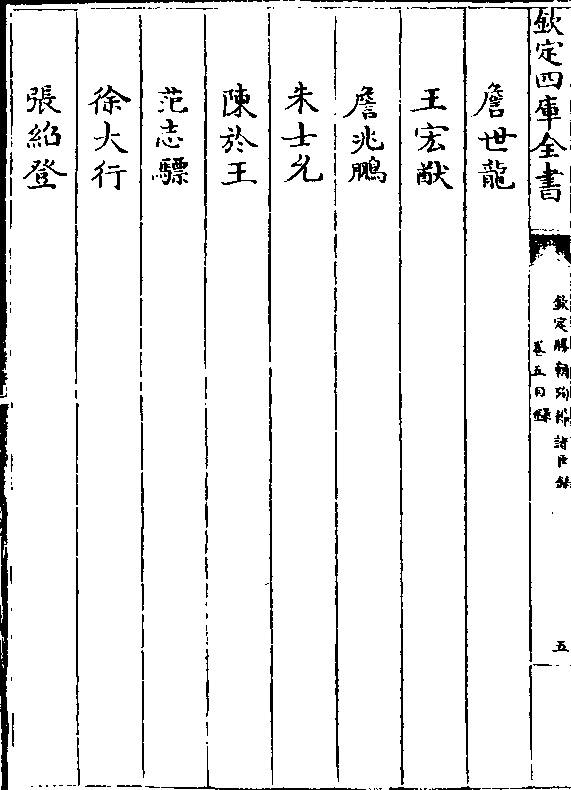 欽定四庫全書
欽定勝朝殉節諸臣録
卷五目錄
五
詹世龍
王宏猷
詹兆鵬
朱士允
陳於王
范志驃
徐大行
張紹登